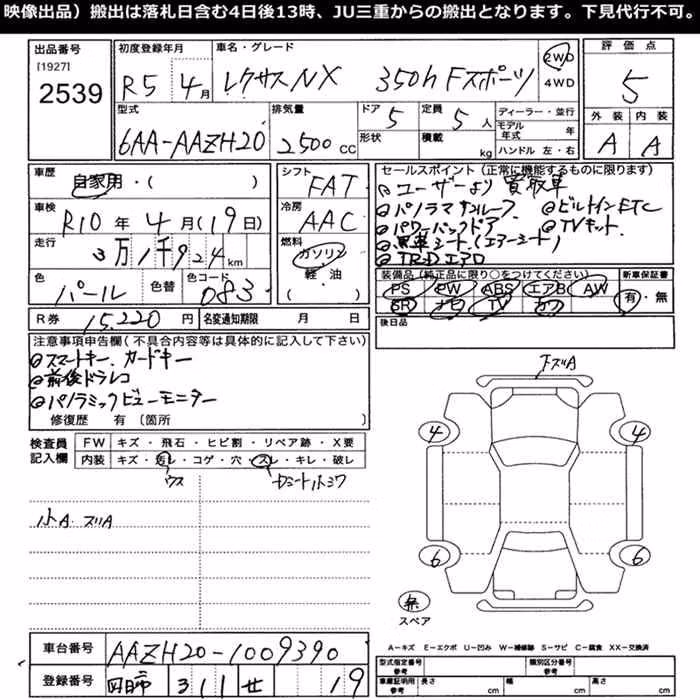 映像出品）搬出は落札日含む4日後13時、JU三重からの搬出となります。下見代行不可。
出品番号
[1927]
2539
初度登録年月
R5年4月
車名・グレード
レクサスNX 350h Fスポーツ
2WD
4WD
評価点
5
外装 内装
A A
型式
6AA-AAZH20
排気量
2500 CC
ドア
5
形状
定員
5人
積載
kg
ディーラー・並行
モデル年式 年
ハンドル 左・右
車歴
自家用・( )
車検
R10年4月(19日)
走行
3万1千924km
色
パール
色替
色コード
083
シフト
FAT
冷房
AAC
燃料
ガソリン
・軽・油
( )
セールスポイント(正常に機能するものに限ります)
ユーザーより買取車
パノラマサンルーフ ビルトインETC
パワーバックドア TVキット
黒革シート(エアーシート)
TRDエアロ
装備品(純正品に限り○をつけてください)
PS PW ABS エアB AW
SR ナビ TV カワ
新車保証書
有・無
後日品
R券
15,220円
名変通知期限 月 日
注意事項申告欄(不具合内容等は具体的に記入して下さい)
スマートキー、カードキー
前後ドラレコ
パノラミックビューモニター
修復歴 有〔箇所
検査員
記入欄
FW キズ・飛石・ヒビ割・リペア跡・X要
内装 キズ・汚レ・コゲ・穴・スレ・キレ・破レ
ウス
小A ズリA
下ズリA
4 4
6 6
無
スペア
A－キズ E－エクボ U－凹み W－補修跡 S－サビ C－腐食 XX－交換済
車台番号
AAZH20-1009390
登録番号
四日市 311 せ 19
型式指定番号
参考
類別区分番号
参考
車庫証明用
参考
長さ cm
幅 cm
高さ cm